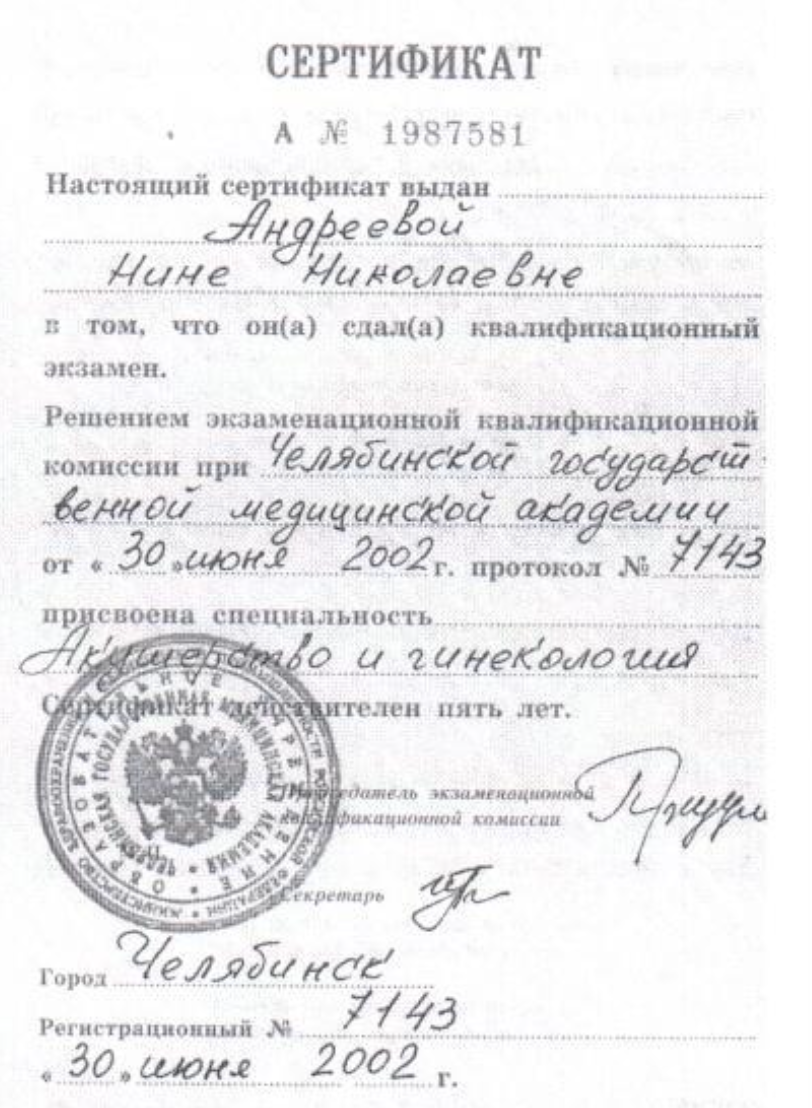 СЕРТИФИКАТ
А № 1987581
Настоящий сертификат выдан
Андреевой
Нине Николаевне
в том, что он(а) сдал(а) квалификационный
экзамен.
Решением экзаменационной квалификационной
комиссии при Челябинской государст-
венной медицинской академии
от « 30 » июня 2002 г. протокол № 7143
присвоена специальность
Акушерство и гинекология
Сертификат действителен пять лет.
МИНИСТЕРСТВО ЗДРАВООХРАНЕНИЯ РОССИЙСКОЙ ФЕДЕРАЦИИ
ОБРАЗОВАТЕЛЬНОЕ УЧРЕЖДЕНИЕ
ЧЕЛЯБИНСКАЯ ГОСУДАРСТВЕННАЯ МЕДИЦИНСКАЯ АКАДЕМИЯ
Председатель экзаменационной
квалификационной комиссии
Секретарь
Город Челябинск
Регистрационный № 7143
« 30 » июня 2002 г.